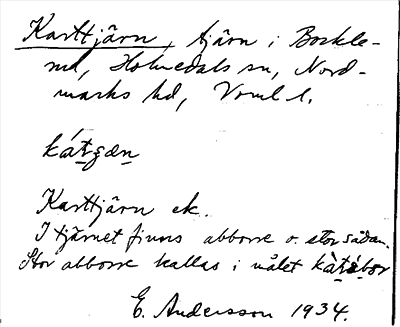 Karttjärn, tjärn i Bockle-
rud, Holmedals sn, Nord-
marks hd, Vrml l.
kát̯ʒæn
Karttjärn ek.
I tjärnet finns abborre o. stor sådan.
Stor abborre kallas i målet
E. Andersson 1934.